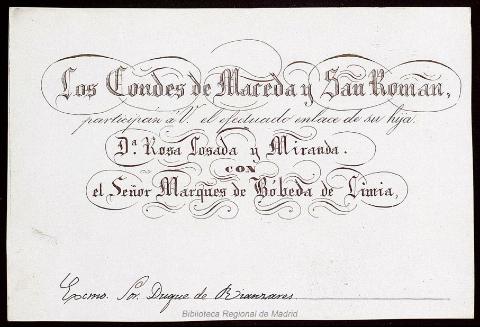 Los Condes de Maceda y San Román,
participan á V. el efectuado enlace de su hija
D.ª Rosa Losada y Miranda.
CON
el Señor Marques de Bóbeda de Limia,
Exmo. Sor. Duque de Rianzares
Biblioteca Regional de Madrid